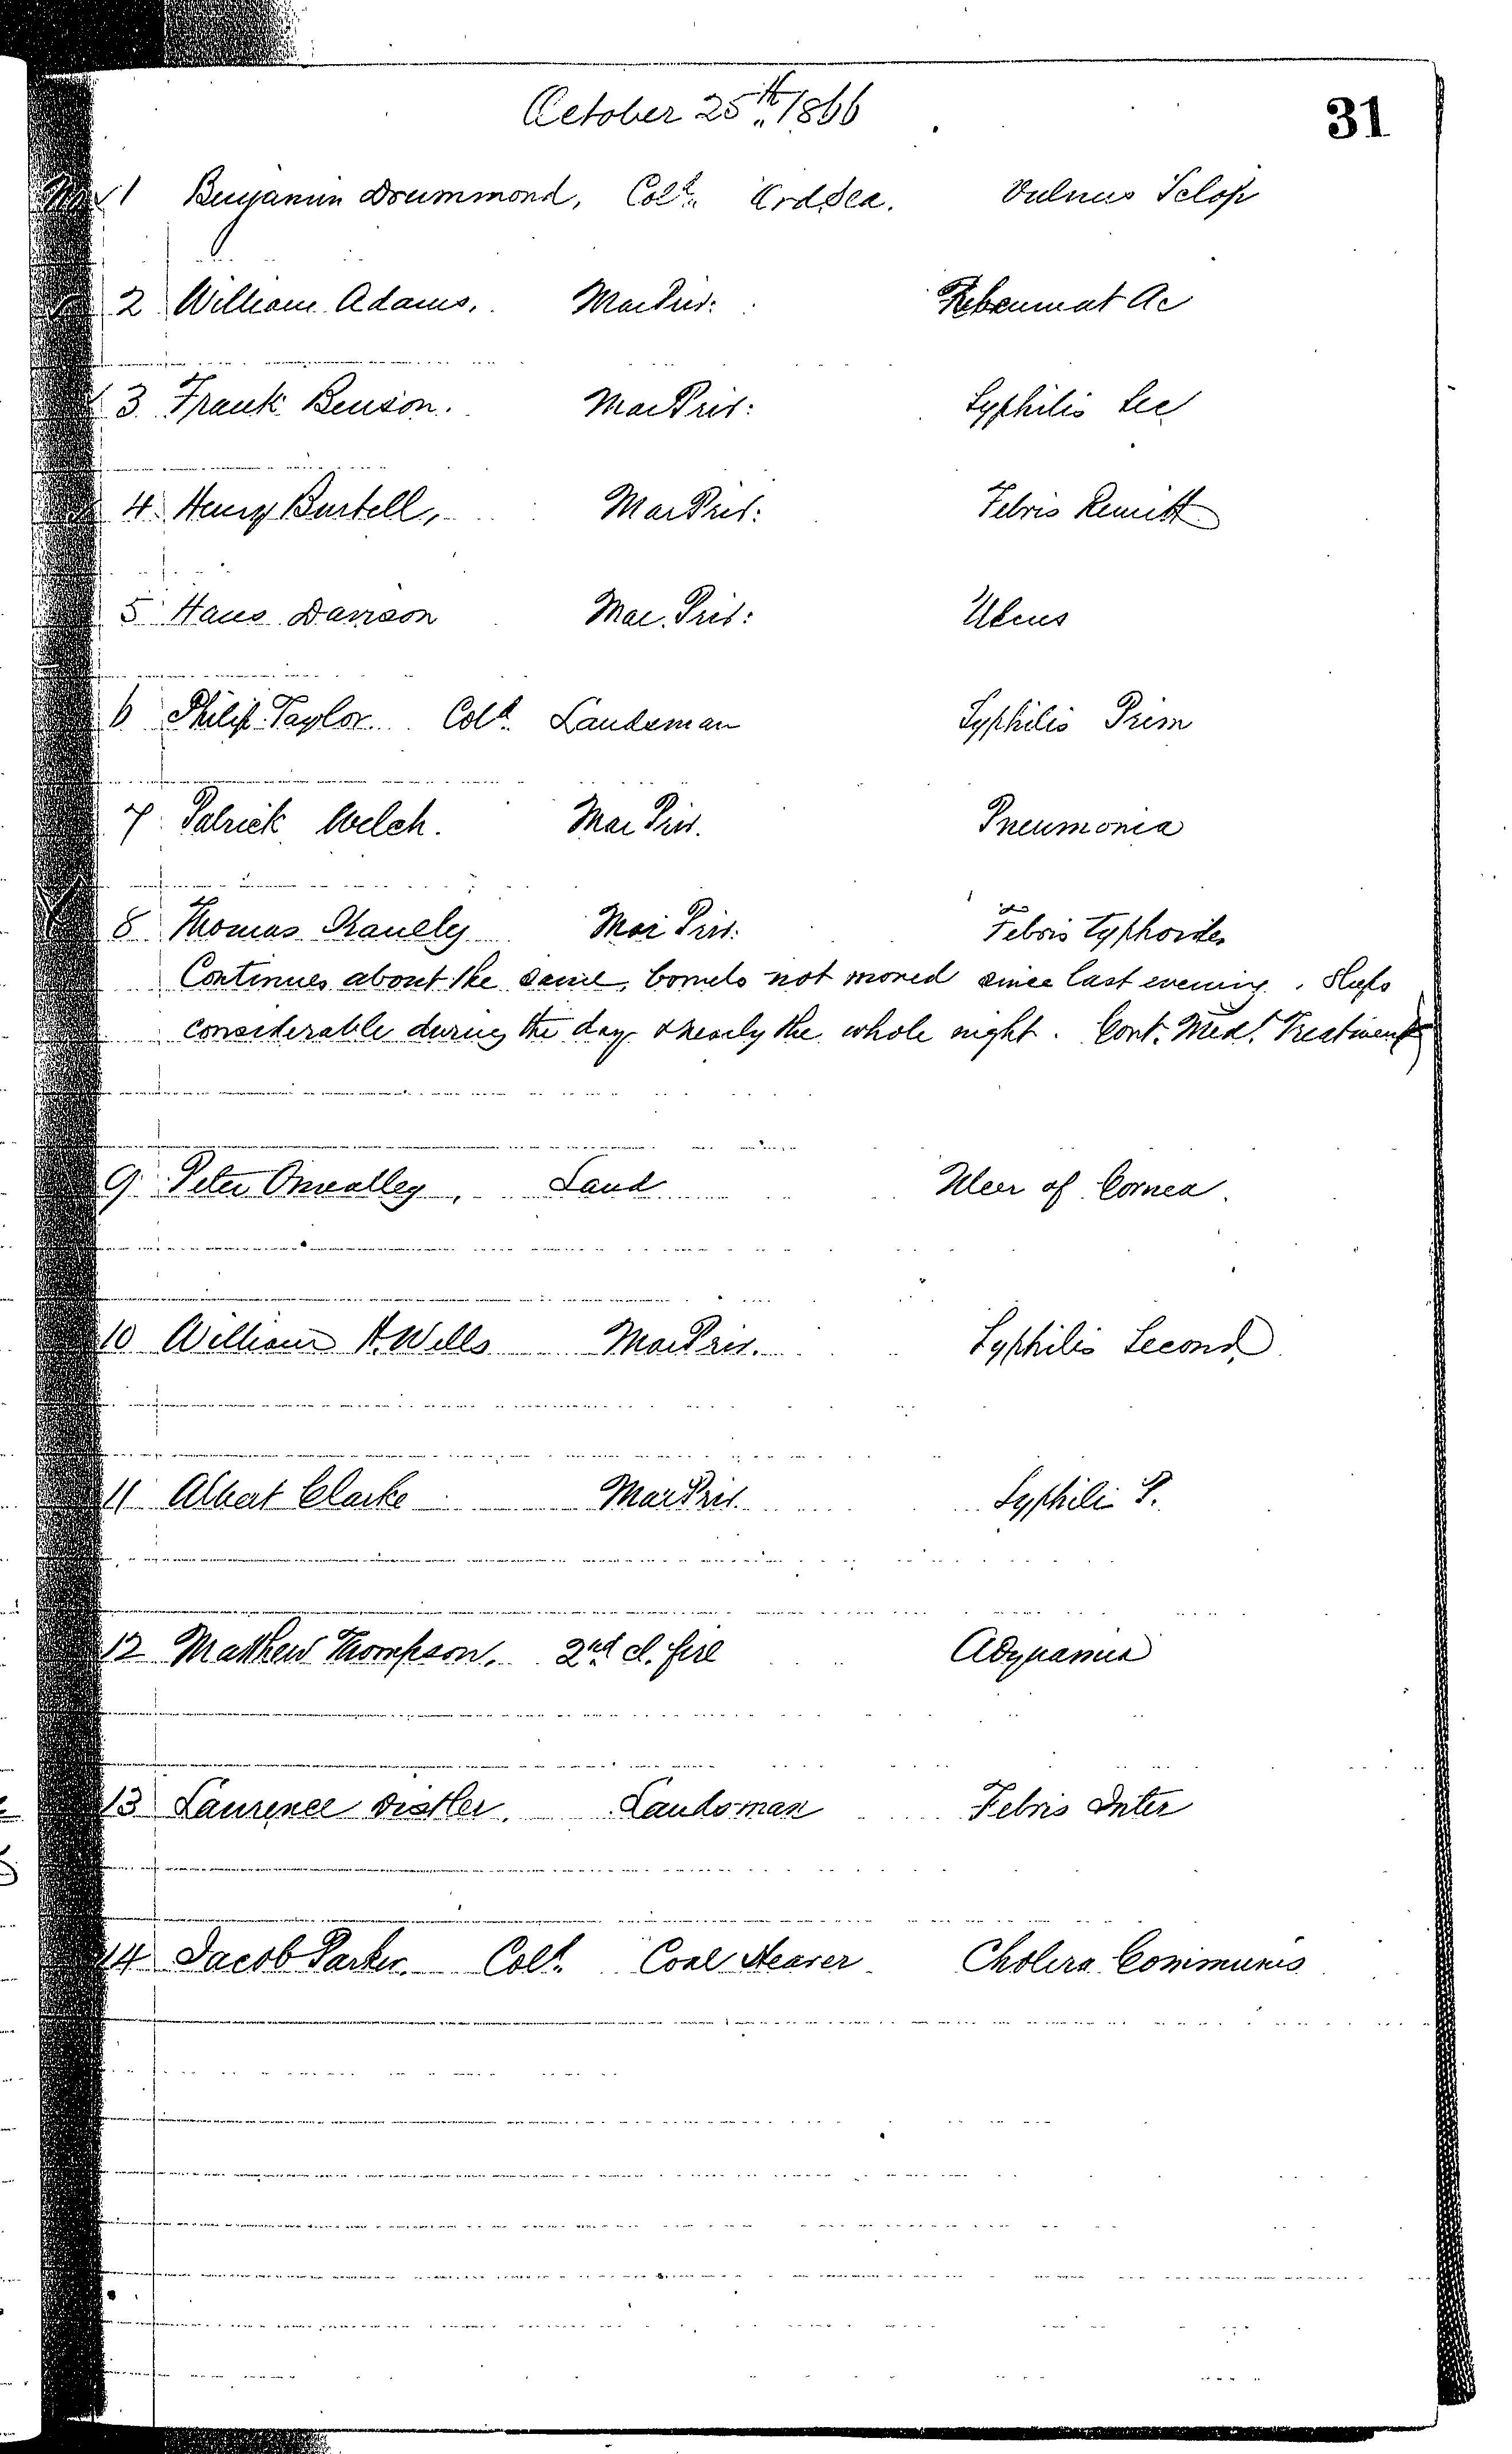 October 25th 1866
31
No 1 Benjamin Drummond, Cold. Ord. Sea. Vulnus Sclop
2 William Adams. Mar Priv: Rheumat Ac
3 Frank Benson. Mar Priv: Syphilis Sec
4 Henry Burtell, Mar Priv: Febris Remitt
5 Hans Davison Mar. Priv: Ulcus
6 Philip Taylor Cold. Landsman Syphilis Prim
7 Patrick Welch. Mar Priv. Pneumonia
8 Thomas Mar Priv: Febris Typhoides
Continues about the same, bowels not moved since last evening. Sleeps
considerable during the day & nearly the whole night. Cont. Med. Treatment
9 Peter Omalley, Land Ulcer of Cornea.
10 William H. Wells Mar Priv. Syphilis Second
11 Albert Clarke Mar Priv. Syphilis P.
12 Matthew Thompson. 2nd cl. fire Adynamia
13 Laurence Distler. Landsman Febris Inter
14 Jacob Parker. Cold. Coal Heaver Cholera Communis